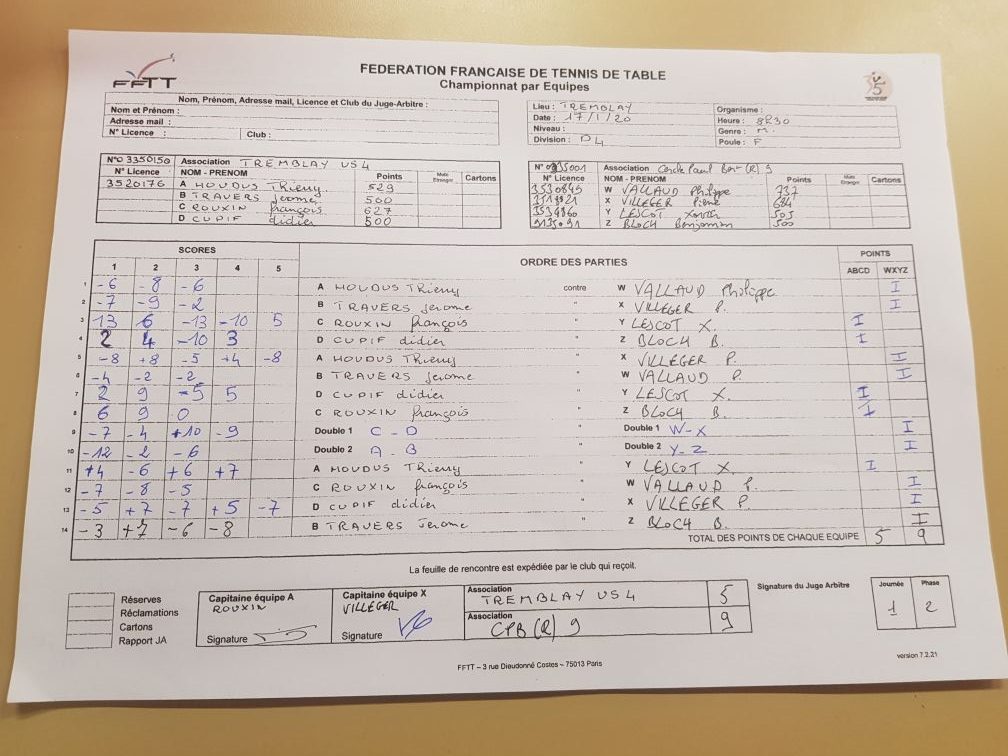 FFTT
FEDERATION FRANCAISE DE TENNIS DE TABLE
Championnat par Equipes
Nom, Prénom, Adresse mail, Licence et Club du Juge-Arbitre :
Nom et Prénom :
Adresse mail :
N° Licence : Club :
Lieu : TREMBLAY Organisme :
Date : 17/1/20 Heure : 8h30
Niveau : Genre : M.
Division : D4 Poule : F
N°0 3350150 Association TREMBLAY US 4
N° Licence NOM - PRENOM Points Mute Etranger Cartons
3520176 A HOUDUS Thierry 529
B TRAVERS Jerome 500
C ROUXIN françois 627
D CUPIF didier 500
N° Association Cercle Paul Bert (R) 9
N° Licence NOM - PRENOM Points Mute Etranger Cartons
3530845 W VALLAUD Philippe 737
X VILLEGER Pierre 684
Y LESCOT 505
Z BLOCH Benjamin 500
SCORES ORDRE DES PARTIES POINTS
1 2 3 4 5 ABCD WXYZ
1 -6 -8 -6 A HOUDUS Thierry contre W VALLAUD Philippe I
2 -7 -9 -2 B TRAVERS Jerome " X VILLEGER P. I
3 13 6 -13 -10 5 C ROUXIN françois " Y LESCOT X. I
4 2 4 -10 3 D CUPIF didier " Z BLOCH B. I
5 -8 +8 -5 +4 -8 A HOUDUS Thierry " X VILLEGER P. I
6 -4 -2 -2 B TRAVERS Jerome " W VALLAUD P. I
7 2 9 -5 5 D CUPIF didier " Y LESCOT X. I
8 6 9 0 C ROUXIN françois " Z BLOCH B. I
9 -7 -4 +10 -9 Double 1 C - D " Double 1 W-X I
10 -12 -2 -6 Double 2 A - B " Double 2 Y-Z I
11 +4 -6 +6 +7 A HOUDUS Thierry " Y LESCOT X. I
12 -7 -8 -5 C ROUXIN françois " W VALLAUD P. I
13 -5 +7 -7 +5 -7 D CUPIF didier " X VILLEGER P. I
14 -3 +7 -6 -8 B TRAVERS Jerome " Z BLOCH B. I
TOTAL DES POINTS DE CHAQUE EQUIPE 5 9
La feuille de rencontre est expédiée par le club qui reçoit.
Réserves
Réclamations
Cartons
Rapport JA
Capitaine équipe A
ROUXIN
Signature
Capitaine équipe X
VILLEGER
Signature
Association
TREMBLAY US 4 5
Association
CPB (R) 9 9
Signature du Juge Arbitre
Journée Phase
1 2
version 7.2.21
FFTT – 3 rue Dieudonné Costes – 75013 Paris